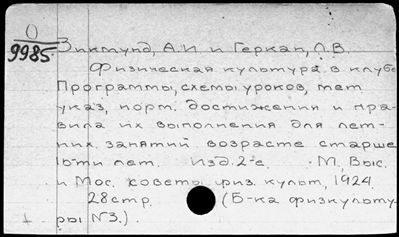 О
9985.
Зикмунд, А.И. и Геркан, Л.В.
Физическая культура в клубе
Программы, схемы уроков, мет.
указ, норм. достижении и пра-
вила их выполнения для лет-
них занятий возрасте старше
16ти лет. Изд. 2-е. М, Выс.
и Мос. советы физ. культ, 1924.
28 стр. (Б-ка физкульту-
ры №3.)